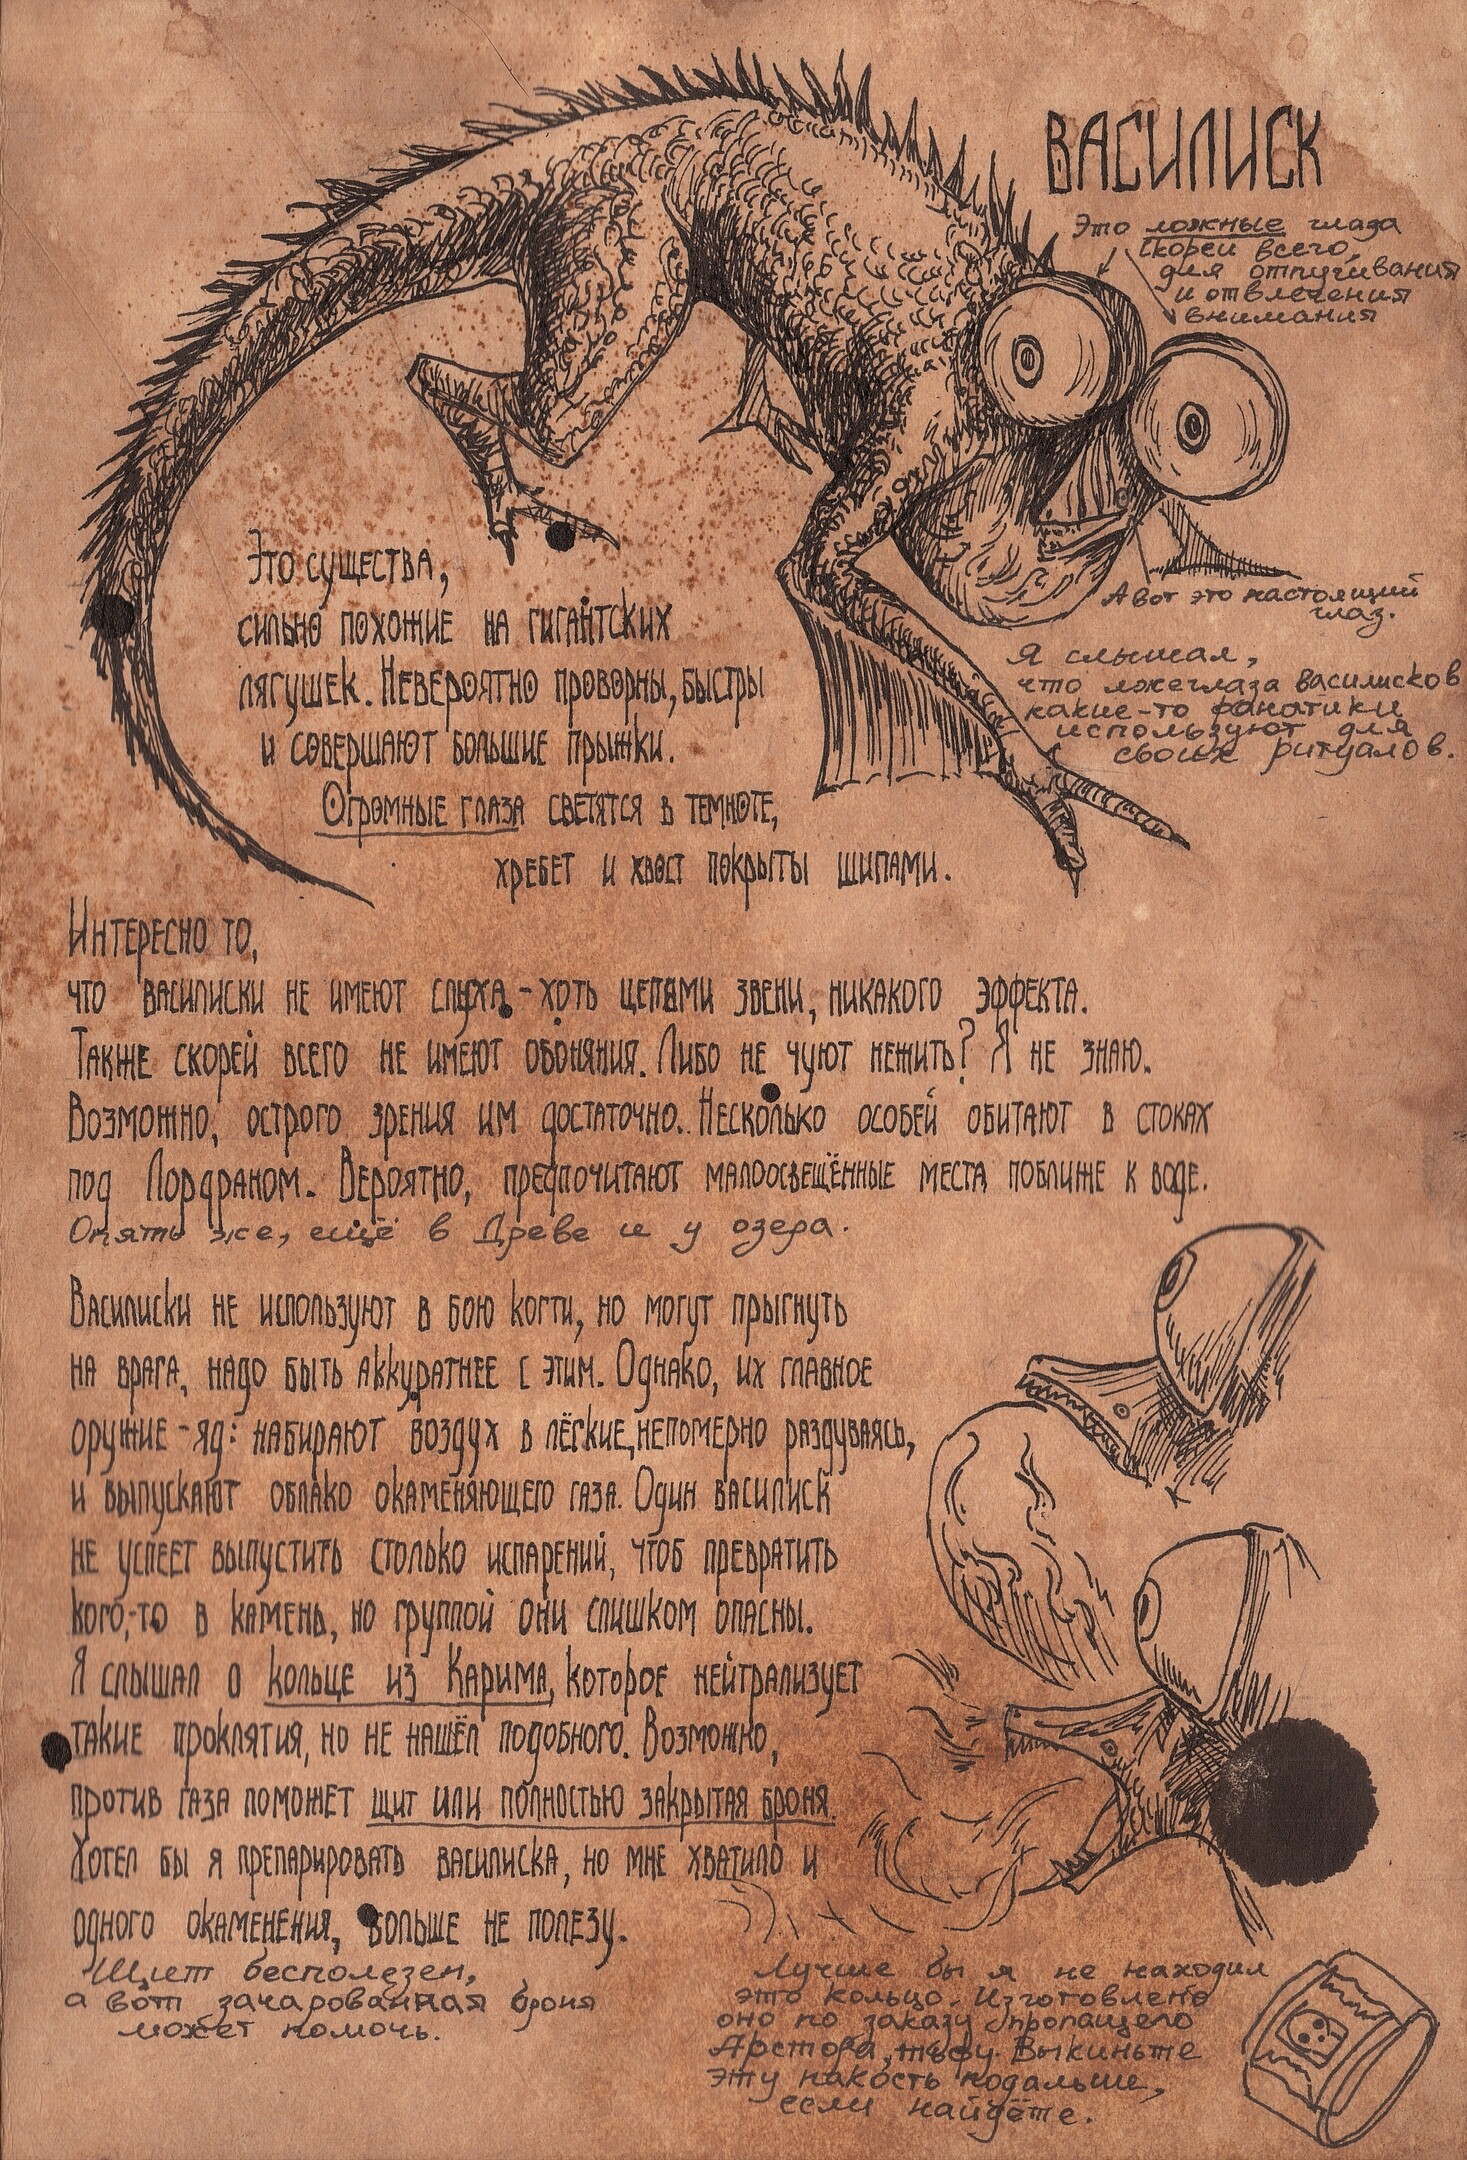 ВАСИЛИСК
Это ложные глаза
скорей всего,
для отпугивания
и отвлечения
внимания
А вот это настоящий
глаз.
Я слышал,
что лжеглаза василисков
какие-то фанатики
используют для
своих ритуалов.
Это существа,
сильно похожие на гигантских
лягушек. Невероятно проворны, быстры
и совершают большие прыжки.
Огромные глаза светятся в темноте,
хребет и хвост покрыты шипами.
Интересно то,
что василиски не имеют слуха - хоть цепями звени, никакого эффекта.
Также скорей всего не имеют обоняния. Либо не чуют нежить? Я не знаю.
Возможно, острого зрения им достаточно. Несколько особей обитают в стоках
под Лордраном. Вероятно, предпочитают малоосвещённые места поближе к воде.
Опять же, ещё в Древе и у озера.
Василиски не используют в бою когти, но могут прыгнуть
на врага, надо быть аккуратнее с этим. Однако, их главное
оружие - яд: набирают воздух в лёгкие, непомерно раздуваясь,
и выпускают облако окаменяющего газа. Один василиск
не успеет выпустить столько испарений, чтоб превратить
кого-то в камень, но группой они слишком опасны.
Я слышал о кольце из Карима, которое нейтрализует
такие проклятия, но не нашёл подобного. Возможно,
против газа поможет щит или полностью закрытая броня.
Хотел бы я препарировать василиска, но мне хватило и
одного окаменения, больше не полезу.
Щит бесполезен,
а вот зачарованная броня
может помочь.
Лучше бы я не находил
это кольцо. Изготовлено
оно по заказу пропащего
Арстора, тьфу. Выкиньте
эту пакость подальше,
если найдёте.